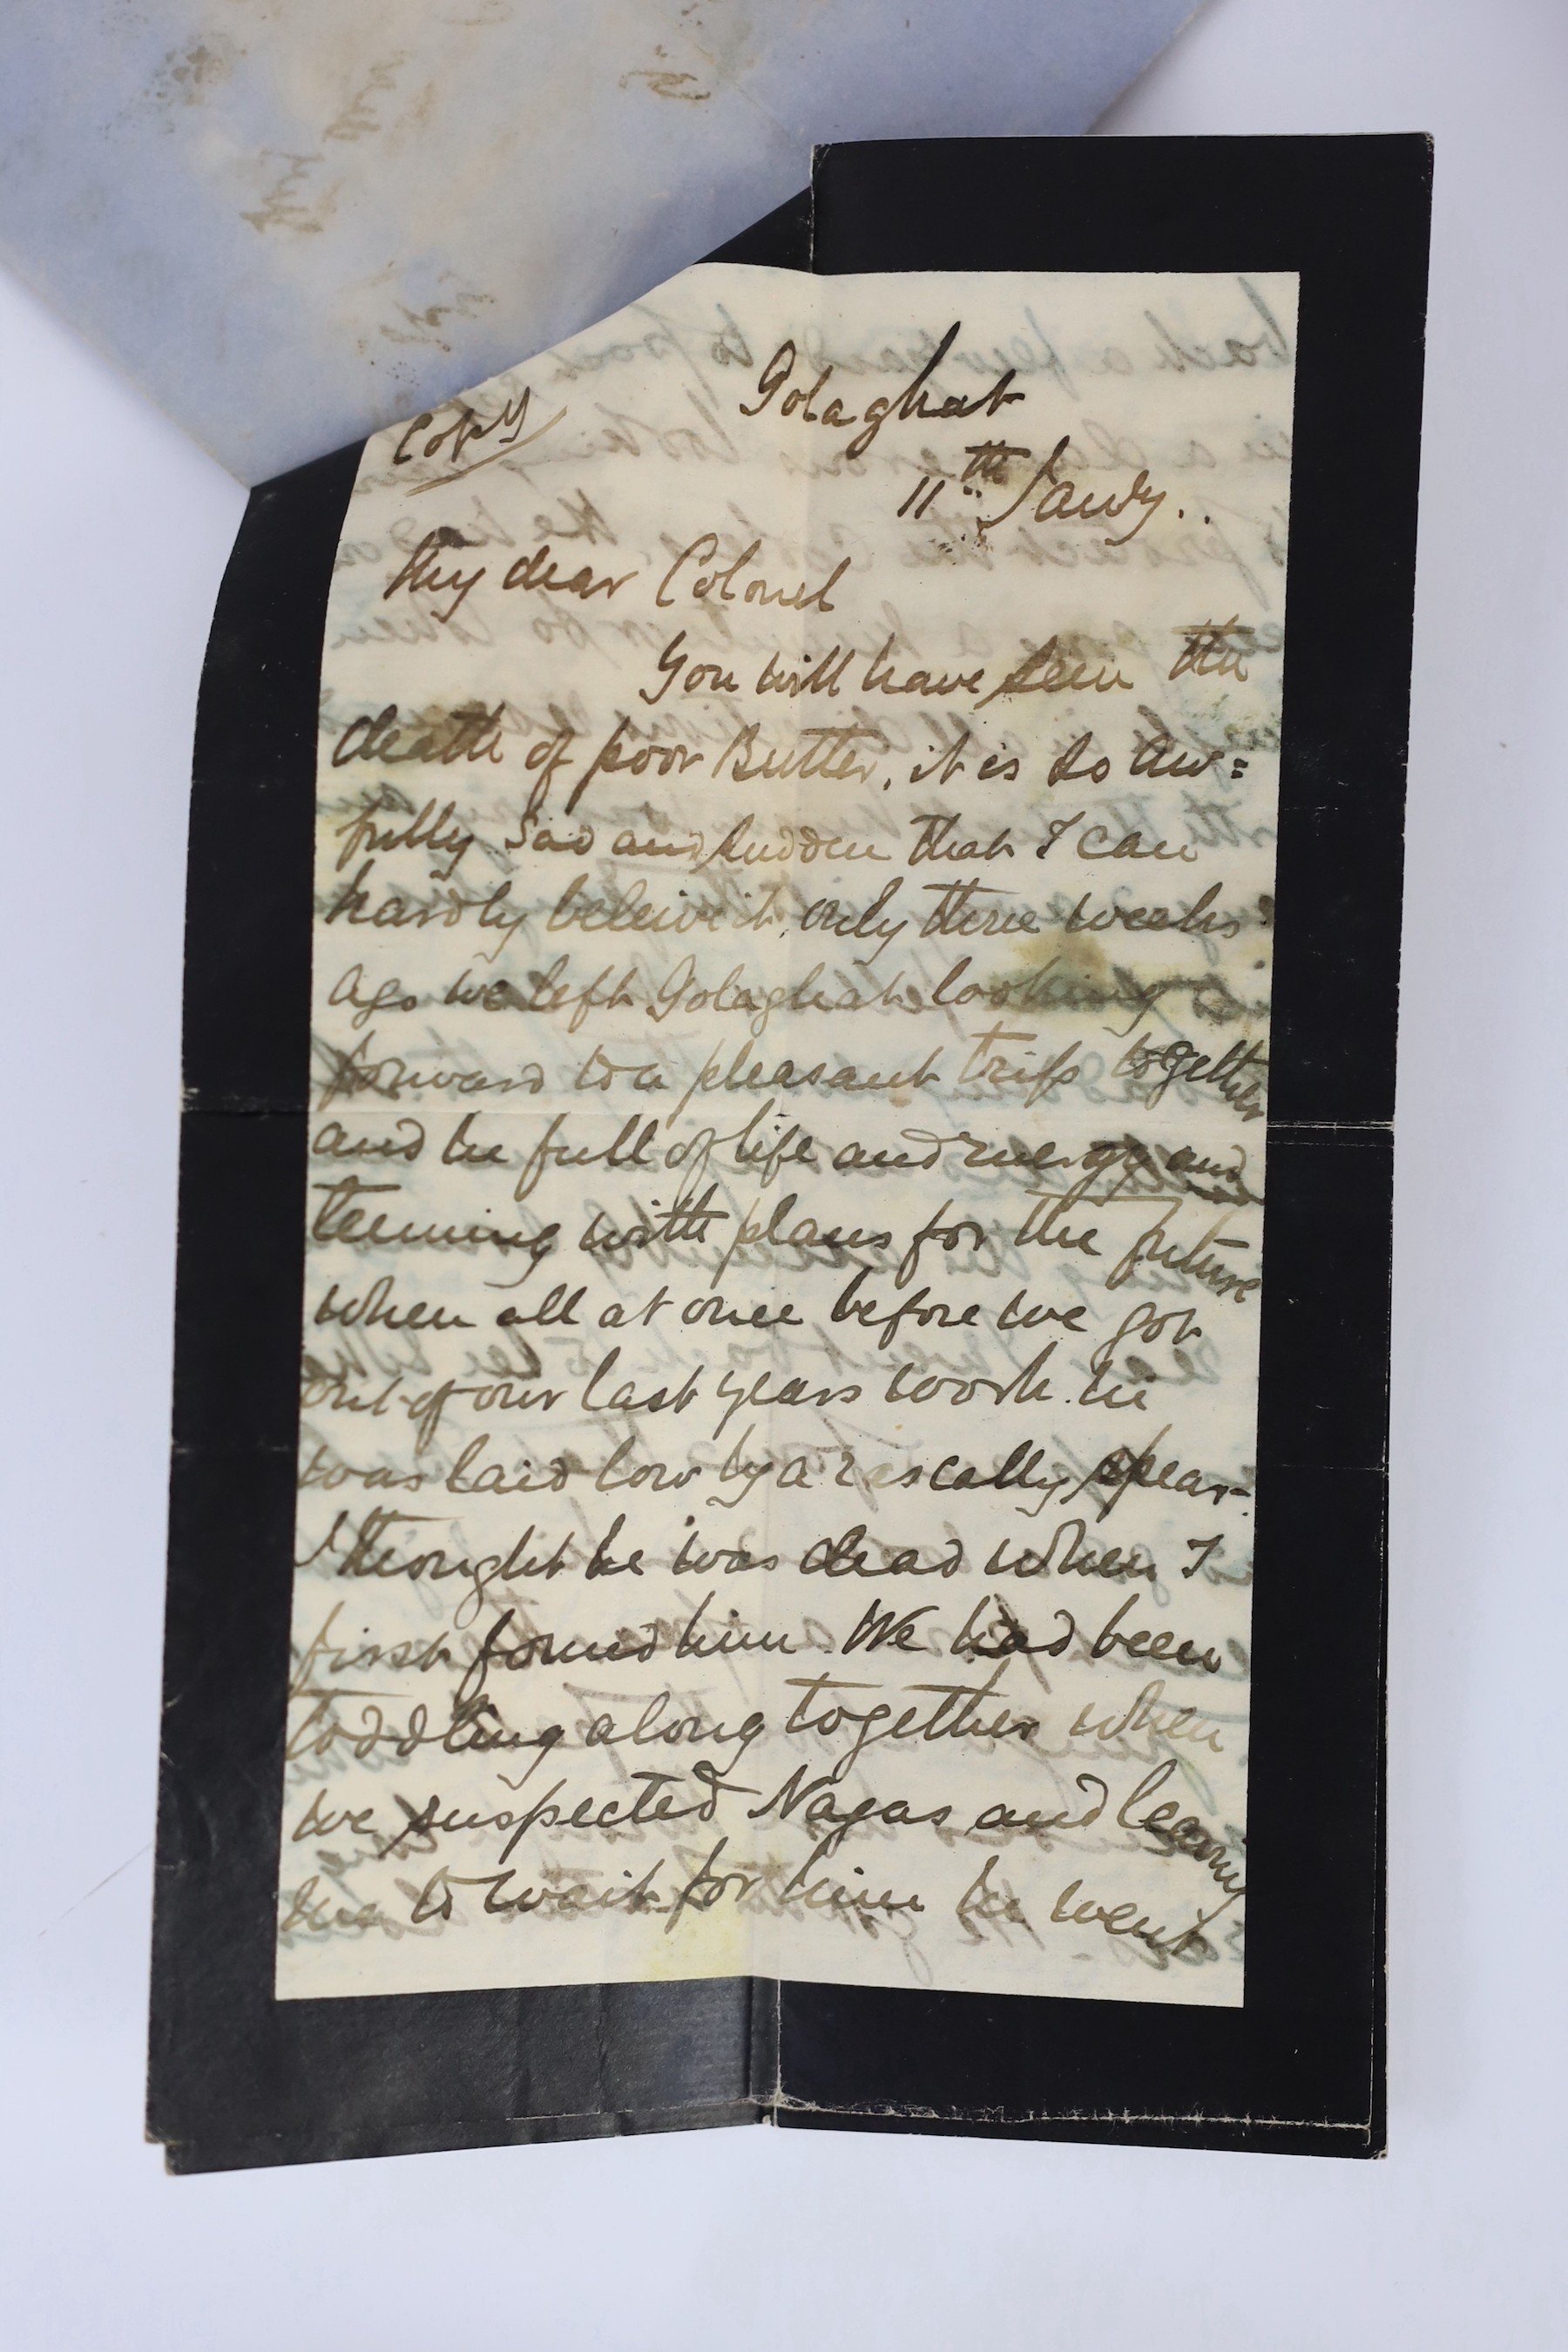 Copy
Golaghat
11th Jany.
My dear Colonel
You will have seen the
death of poor Butler, it is so aw=
fully sad and sudden that I can
hardly beleive it, only three weeks
ago we left Golaghat looking
forward to a pleasant trip together
and he full of life and energy and
teeming with plans for the future
when all at once before we got
out of our last years work he
was laid low by a rascally spear-
I thought he was dead when I
first found him. We had been
toddling along together when
we suspected Nagas and leaving
me to wait for him he went